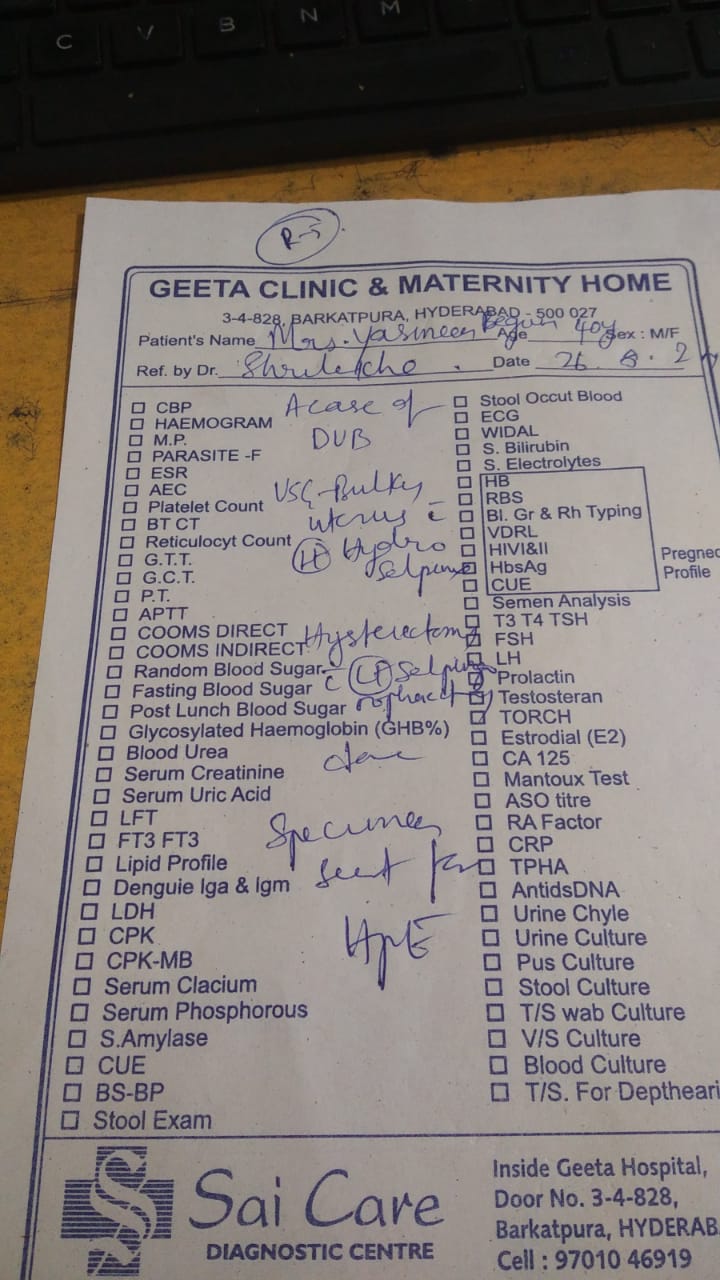 C V B N M
R-5
GEETA CLINIC & MATERNITY HOME
3-4-828, BARKATPURA, HYDERABAD - 500 027
Patient's Name Mrs. Yasmeen Begum Age 40y Sex : M/F
Ref. by Dr. Shrilekha . Date 26. 8. 2
CBP
HAEMOGRAM
M.P.
PARASITE -F
ESR
AEC
Platelet Count
BT CT
Reticulocyt Count
G.T.T.
G.C.T.
P.T.
APTT
COOMS DIRECT
COOMS INDIRECT
Random Blood Sugar
Fasting Blood Sugar
Post Lunch Blood Sugar
Glycosylated Haemoglobin (GHB%)
Blood Urea
Serum Creatinine
Serum Uric Acid
LFT
FT3 FT3
Lipid Profile
Denguie Iga & Igm
LDH
CPK
CPK-MB
Serum Clacium
Serum Phosphorous
S.Amylase
CUE
BS-BP
Stool Exam
A case of
DUB
USG-Bulky
uterus c
(H) Hydro
Salpinx
Hysterectomy
c (LT) Salpingo
oophorectomy
done
Specimen
sent for
HPE
Stool Occut Blood
ECG
WIDAL
S. Bilirubin
S. Electrolytes
HB
RBS
Bl. Gr & Rh Typing
VDRL
HIVI&II
HbsAg
CUE
Pregne
Profile
Semen Analysis
T3 T4 TSH
FSH
LH
Prolactin
Testosteran
TORCH
Estrodial (E2)
CA 125
Mantoux Test
ASO titre
RA Factor
CRP
TPHA
AntidsDNA
Urine Chyle
Urine Culture
Pus Culture
Stool Culture
T/S wab Culture
V/S Culture
Blood Culture
T/S. For Deptheari
Sai Care
DIAGNOSTIC CENTRE
Inside Geeta Hospital,
Door No. 3-4-828,
Barkatpura, HYDERAB
Cell : 97010 46919